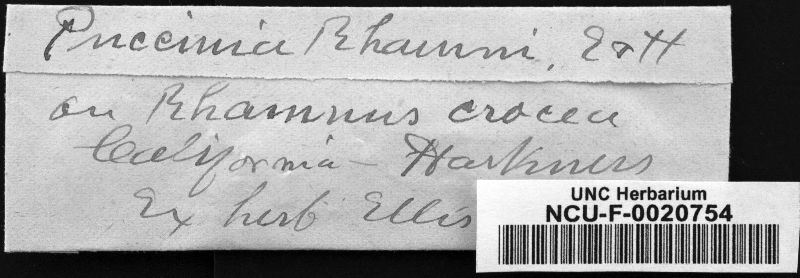 Puccinia Rhamni, E&H
on Rhamnus crocea
California – Harkness
Ex herb Ellis
UNC Herbarium
NCU-F-0020754